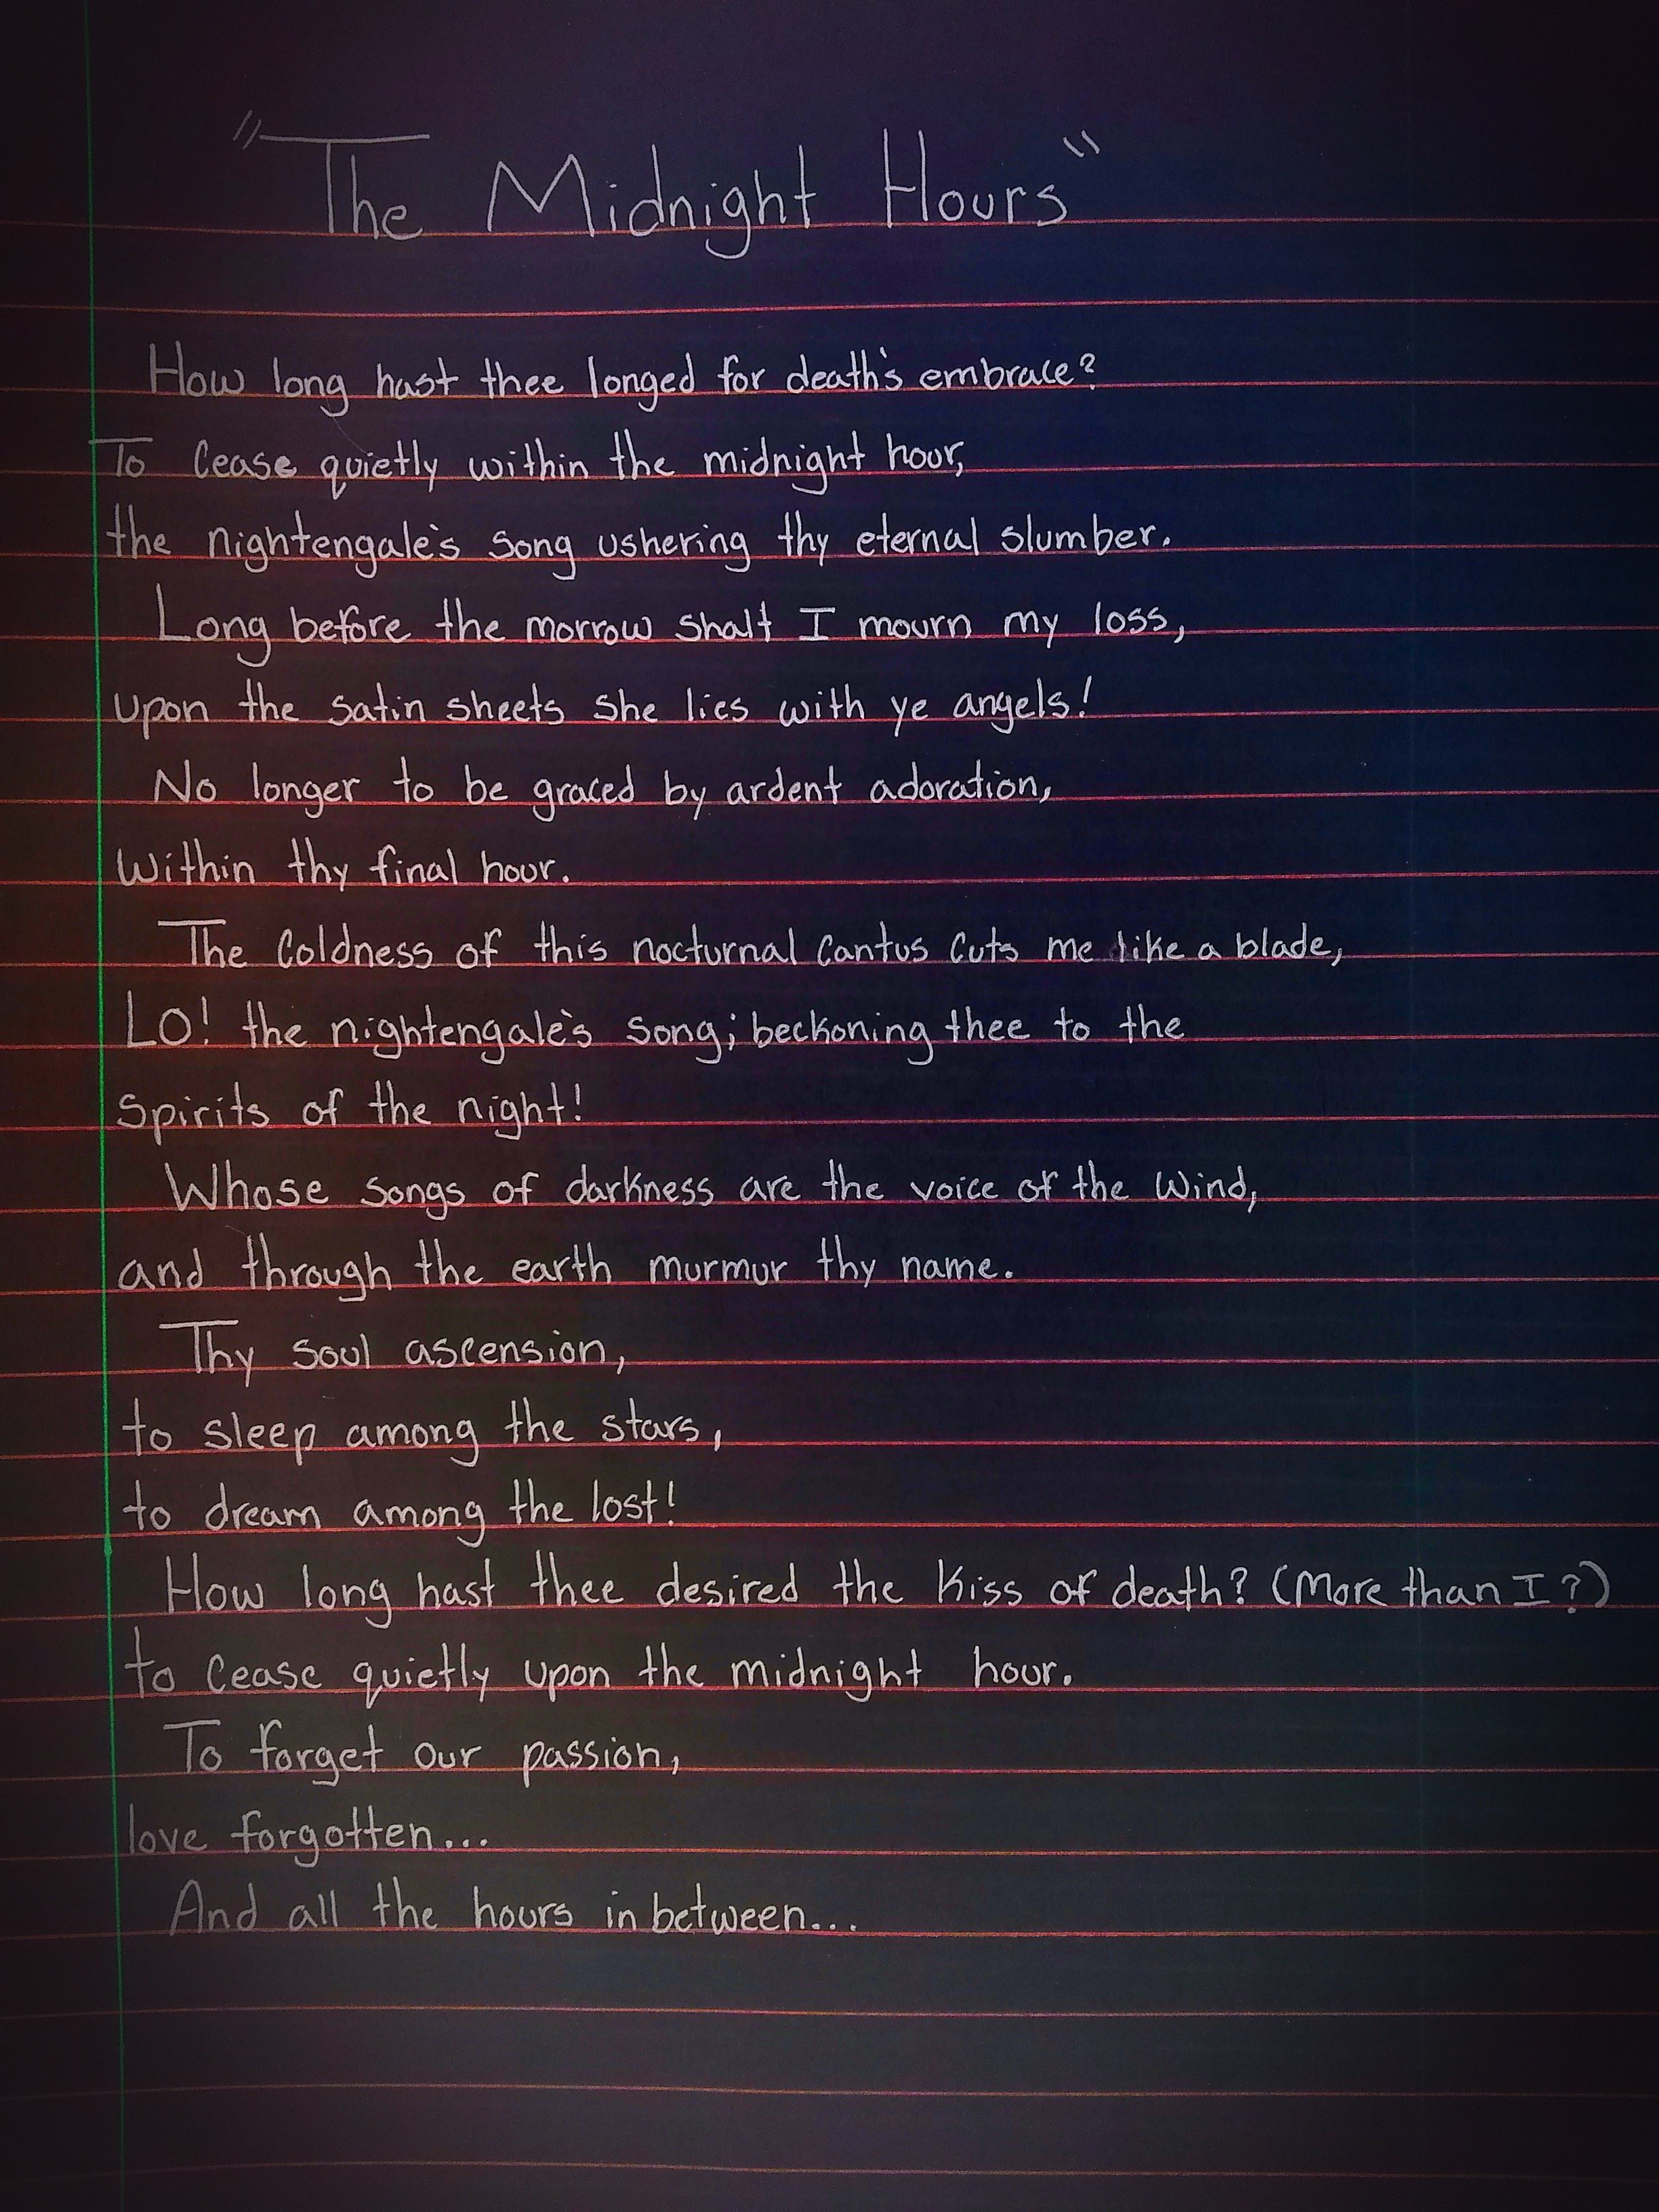 "The Midnight Hours"
How long hast thee longed for death's embrace?
To cease quietly within the midnight hour,
the nightengale's song ushering thy eternal slumber.
Long before the morrow shalt I mourn my loss,
upon the satin sheets she lies with ye angels!
No longer to be graced by ardent adoration,
within thy final hour.
The coldness of this nocturnal cantus cuts me like a blade,
LO! the nightengale's song; beckoning thee to the
spirits of the night!
Whose songs of darkness are the voice of the wind,
and through the earth murmur thy name.
Thy soul ascension,
to sleep among the stars,
to dream among the lost!
How long hast thee desired the kiss of death? (More than I?)
to cease quietly upon the midnight hour.
To forget our passion,
love forgotten...
And all the hours in between...